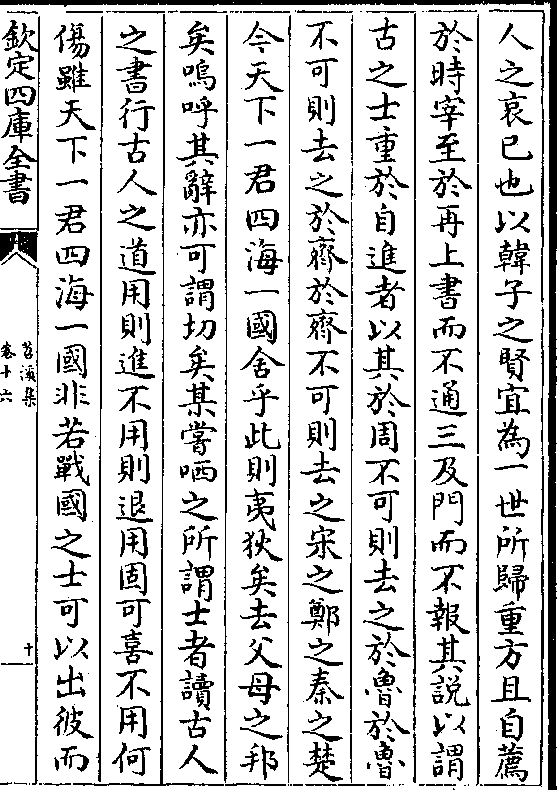 人之哀已也以韓子之賢宜為一世所歸重方且自薦
於時宰至於再上書而不通三及門而不報其説以謂
古之士重於自進者以其於周不可則去之於魯於魯
不可則去之於齊於齊不可則去之宋之鄭之秦之楚
今天下一君四海一國舍乎此則夷狄矣去父母之邦
矣嗚呼其辭亦可謂切矣某嘗哂之所謂士者讀古人
之書行古人之道用則進不用則退用固可喜不用何
傷雖天下一君四海一國非若戰國之士可以出彼而
欽定四庫全書
苕溪集
卷十六
十